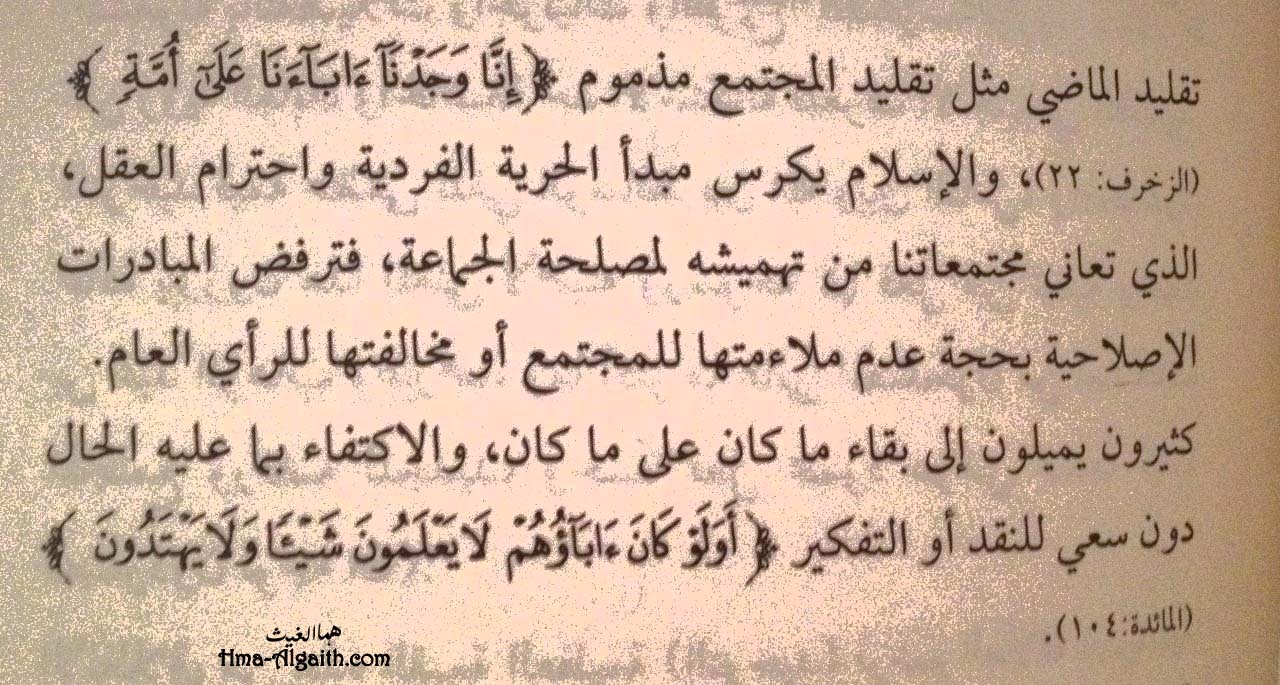 تقليد الماضي مثل تقليد المجتمع مذموم ﴿إِنَّا وَجَدْنَآ ءَابَآءَنَا عَلَىٰٓ أُمَّةٍ﴾
(الزخرف: ٢٢)، والإسلام يكرس مبدأ الحرية الفردية واحترام العقل،
الذي تعاني مجتمعاتنا من تهميشه لمصلحة الجماعة، فترفض المبادرات
الإصلاحية بحجة عدم ملاءمتها للمجتمع أو مخالفتها للرأي العام.
كثيرون يميلون إلى بقاء ما كان على ما كان، والاكتفاء بما عليه الحال
دون سعي للنقد أو التفكير ﴿أَوَلَوْ كَانَ ءَابَآؤُهُمْ لَا يَعْلَمُونَ شَيْـًٔا وَلَا يَهْتَدُونَ﴾
(المائدة: ١٠٤).
هماالغيث
Hma-Algaith.com